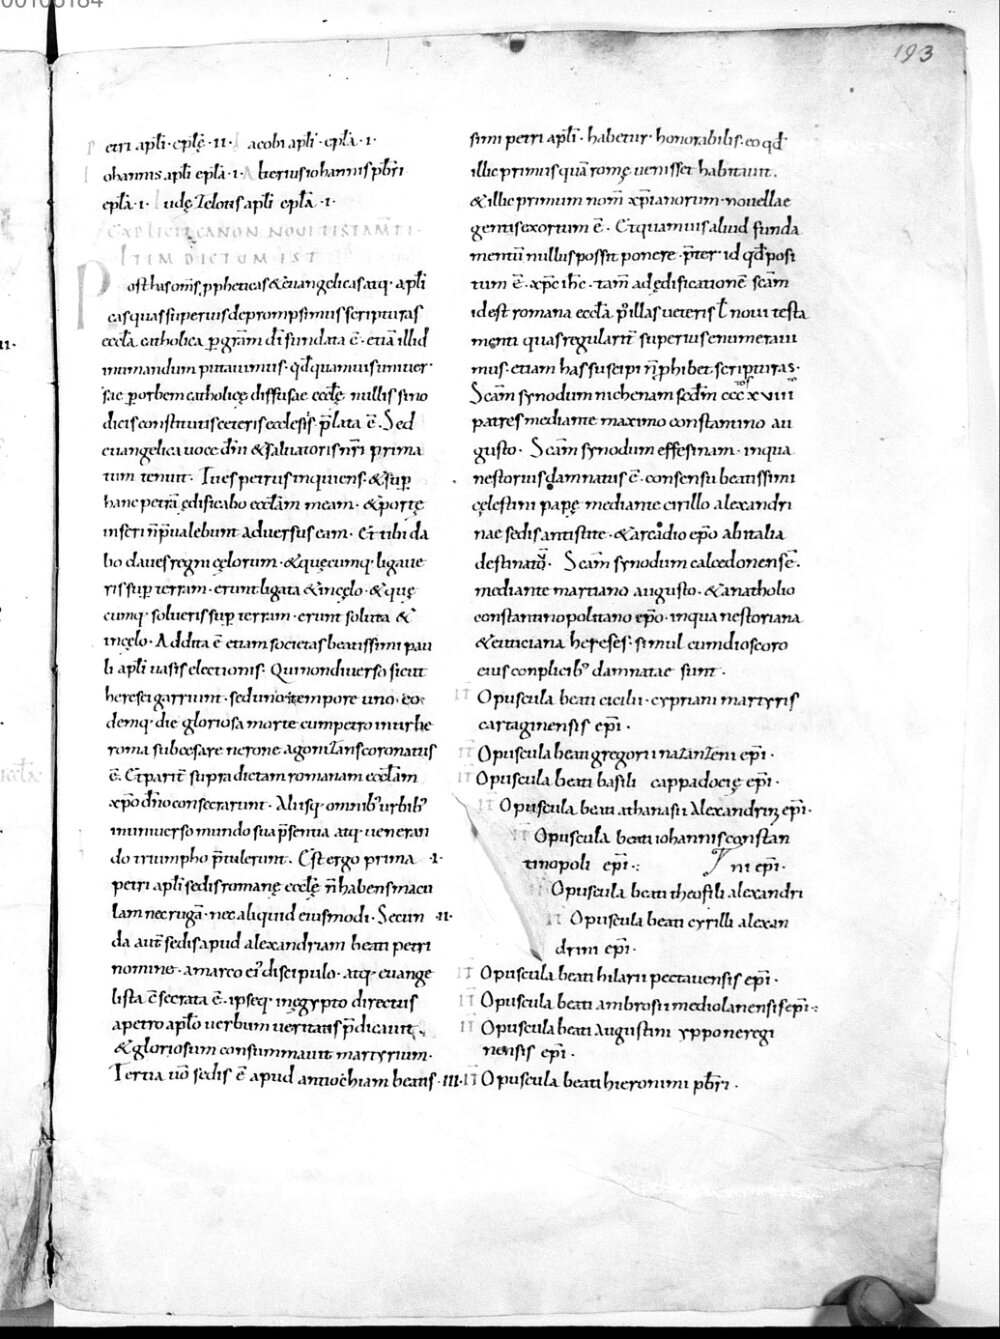 00106184
193
Petri apłi · epłę · II · Iacobi apłi · epła · I ·
Iohannis apłi epła · I · Alterius iohannis p̄bri
epła · I · Iudę Zelotis apłi epła · I ·
EXPLICIT CANON NOVI TISTAM̄TI ·
ITIM DICTUM IST
Post has om̄s ꝓpheticas & euangelicas atq · apłi
cas quas superius deprompsimus scripturas
eccła catholica ꝑ gr̄am dī fundata ē · etiā illud
intimandum putauimus · qđ quamuis uniuer
sae ꝑ orbem catholicę diffusae ecclę nullis sino
dicis constitutis ceteris ecclesiis p̄lata ē · Sed
euangelica uoce dn̄i & saluatoris nr̄i prima
tum tenuit · Tu es petrus inquiens · & suꝑ
hanc petrā ędificabo eccłam meam · & portę
inferi n̄ p̄ualebunt aduersus eam · Et tibi da
bo claues regni cęlorum · & quęcumq · ligaue
ris suꝑ terram · erunt ligata & in cęlo · & quę
cumq · solueris suꝑ terram · erunt soluta &
in cęlo · Addita ē etiam societas beatissimi pau
li apłi uasis electionis · Qui non diuerso sicut
heresei garriunt · sed uno tempore uno · eo
demq · die gloriosa morte cum petro in urbe
roma sub cesare nerone agoniZans coronatus
ē · Et parit̄ supra dictam romanam eccłam
xp̄o dn̄o consecrarunt · Aliisq · omnib᾽ urbib᾽
in uniuerso mundo sua p̄sentia atq · ueneran
do triumpho p̄tulerunt · Est ergo prima · I ·
petri apłi sedis romanę ecclę n̄ habens macu
lam nec rugā · nec aliquid eiusmodi · Secun · II ·
da aut̄ sedis apud alexandriam beati petri
nomine · a marco ei᾽ discipulo · atq · euange
lista c̄secrata ē · ipseq · in ęgypto directus
a petro apło uerbum ueritatis p̄dicauit ·
& gloriosum consummauit martyrium ·
Tertia uō sedis ē apud antiochiam beatis · III ·
simi petri apłi · habetur · honorabilis · eo qđ
illic primus quā romę uenisset habitauit ·
& illic primum nom̄ xp̄ianorum · nouellae
gentis exortum ē · Et quamuis aliud funda
mentū nullus possit ponere · p̄ter id qđ posi
tum ē · xp̄c ih̄c · tam̄ ad ędificationē sc̄am
id est romana eccła p᾽ illas ueteris ł noui testa
menti quas regularit̄ superius enumeraui
mus · etiam has suscipi n̄ phibet · scripturas ·
Sc̄am synodum nichenam sc̄dm̄ cccxviii
patres mediante maximo constantino au
gusto · Sc̄am synodum effesinam · in qua
nestorius damnatus ē · consensu beatissimi
cęlestini papę mediante cirillo alexandri
nae sedis antistite · & arcadio ep̄o ab italia
destinato · Sc̄am synodum calcedonensē ·
mediante martiano augusto · & anatholio
constantinopolitano ep̄o · in qua nestoriana
& euticiana hereses · simul cum dioscoro
eius conplicib᾽ damnatae sunt ·
IT Opuscula beati cicilii · cypriani martyris
cartaginensis ep̄i ·
IT Opuscula beati gregorii naZanZeni ep̄i ·
IT Opuscula beati basili cappadocię ep̄i ·
IT Opuscula beati athanasii Alexandrin ep̄i ·
IT Opuscula beati iohannis constan
tinopoli ep̄i · : ni ep̄i ·
IT Opuscula beati theofili alexandri
IT Opuscula beati cyrilli alexan
drini ep̄i ·
IT Opuscula beati hilarii pectauensis ep̄i ·
IT Opuscula beati ambrosii mediolanensis ep̄i · :
IT Opuscula beati Augustini ypponeregi
nensis ep̄i ·
IT Opuscula beati hieronimi p̄bri ·